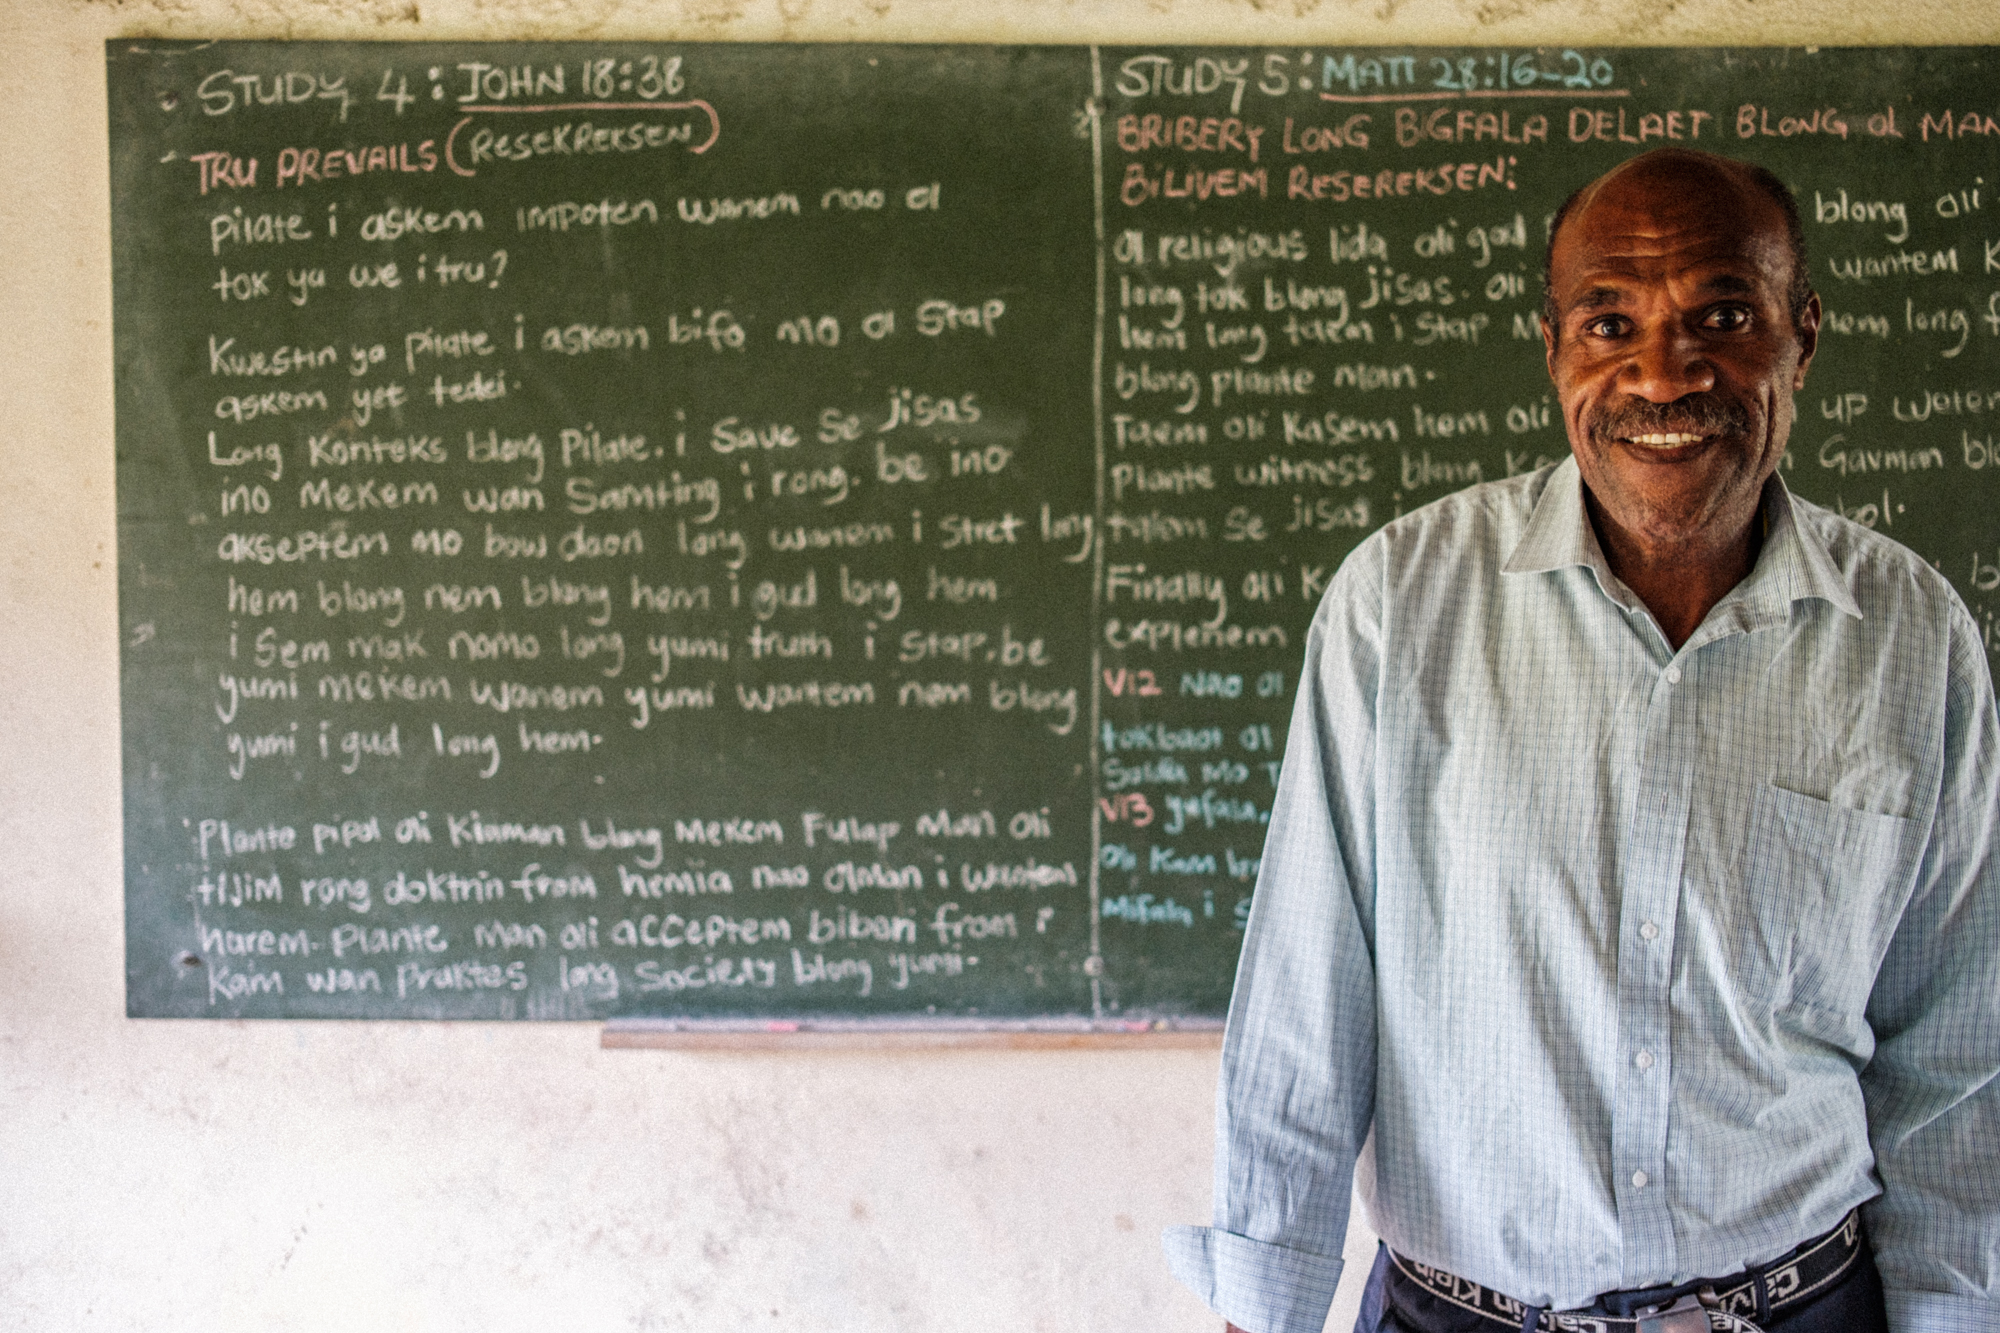 STUDY 4: JOHN 18:38
TRU PREVAILS (RESEKREKSEN)
Pilate i askem impoten wanem nao ol
tok ya we i tru?
Kwestin ya pilate i askem bifo mo ol stap
askem yet tedei.
Long Konteks blong Pilate. i save se jisas
ino mekem wan samting i rong. be ino
akseptem mo bow daon long wanem i stret long
hem blong nem blong hem i gud long hem
i sem mak nomo long yumi truth i stap. be
yumi mekem wanem yumi wantem nem blong
yumi i gud long hem.
Plante pipol oli kiaman blong mekem Fulap Man oli
tijim rong doktrin from hemia nao olman i wantem
harem. Plante man oli acceptem bibori from i
kam wan praktes long society blong yumi.
STUDY 5: MATT 28:16-20
BRIBERY LONG BIGFALA DELAET BLONG OL MAN
BILIVEM RESEREKSEN:
Ol religious lida oli gad blong oli
long tok blong jisas. Oli wantem K
hem long taem i stap M long f
blong plante man.
Taem oli kasem hem oli up water
Plante witness blong Gavman blo
talem se jisas i bol.
Finally oli K
explenem
V12 Nao ol
tokbaot ol
Soldia mo T
V13 yufala.
oli kam
Mifala i S
Calvin Klein